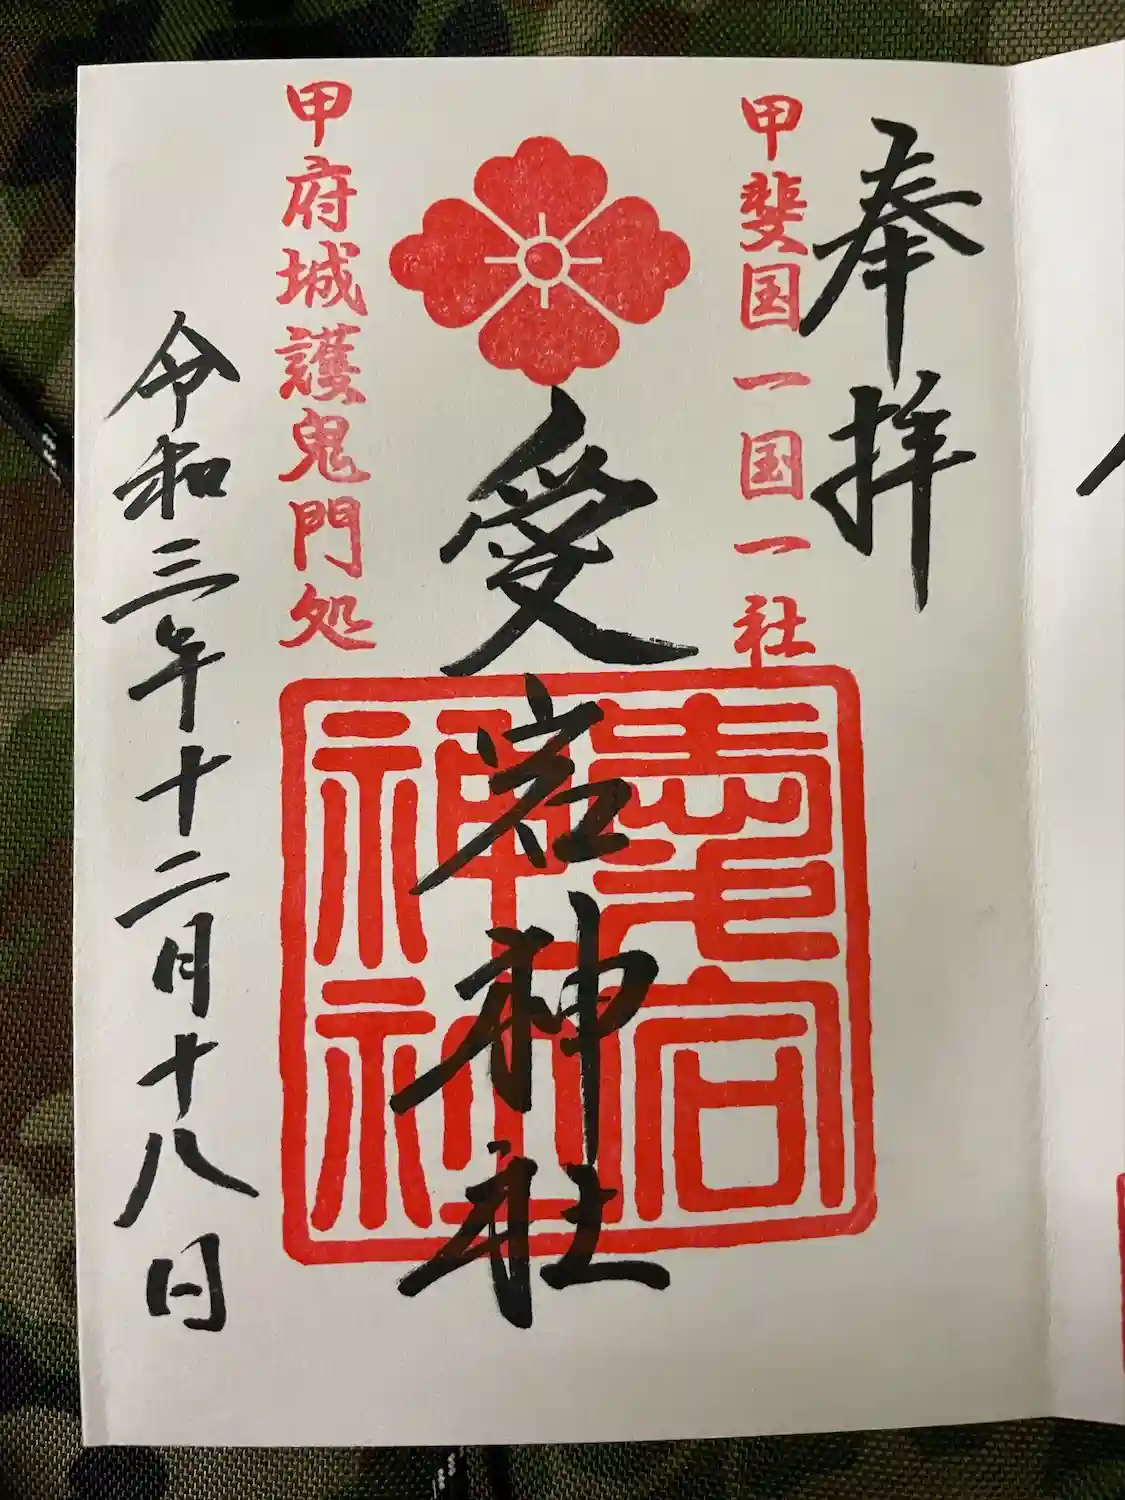 奉拝
甲斐国一国一社
愛宕神社
愛宕
神社
甲府城護鬼門処
令和三年十二月十八日